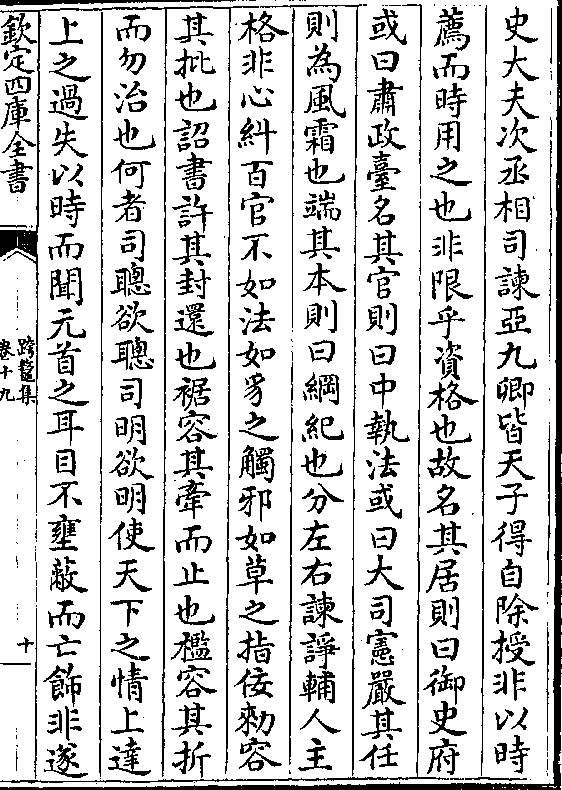 史大夫次丞相司諫亞九卿皆天子得自除授非以時
薦而時用之也非限乎資格也故名其居則曰御史府
或曰肅政臺名其官則曰中執法或曰大司憲嚴其任
則為風霜也端其本則曰綱紀也分左右諫諍輔人主
格非心糾百官不如法如豸之觸邪如草之指佞勑容
其批也詔書許其封還也裾容其牽而止也檻容其折
而勿治也何者司聰欲聰司明欲明使天下之情上達
上之過失以時而聞元首之耳目不壅蔽而亡飾非遂
欽定四庫全書
跨鼇集
卷十九
十